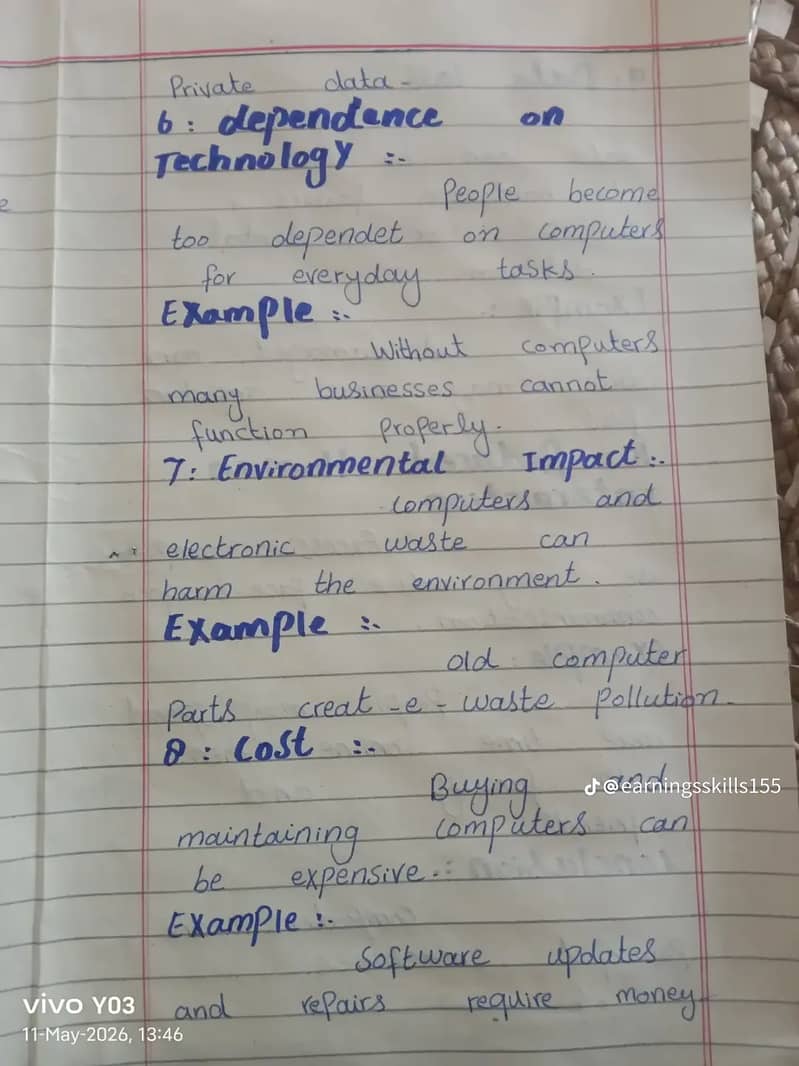 Private data-
6: dependance on
Technology :-
People become
too dependet on computers
for everyday tasks.
Example :-
Without computers
many businesses cannot
function properly.
7: Environmental Impact :-
computers and
electronic waste can
harm the environment.
Example :-
old computer
Parts creat-e-waste pollution-
8: Cost :-
Buying and
@earningsskills155
maintaining computers can
be expensive.:
Example :-
Software updates
and repairs require money
vivo Y03
11-May-2026, 13:46